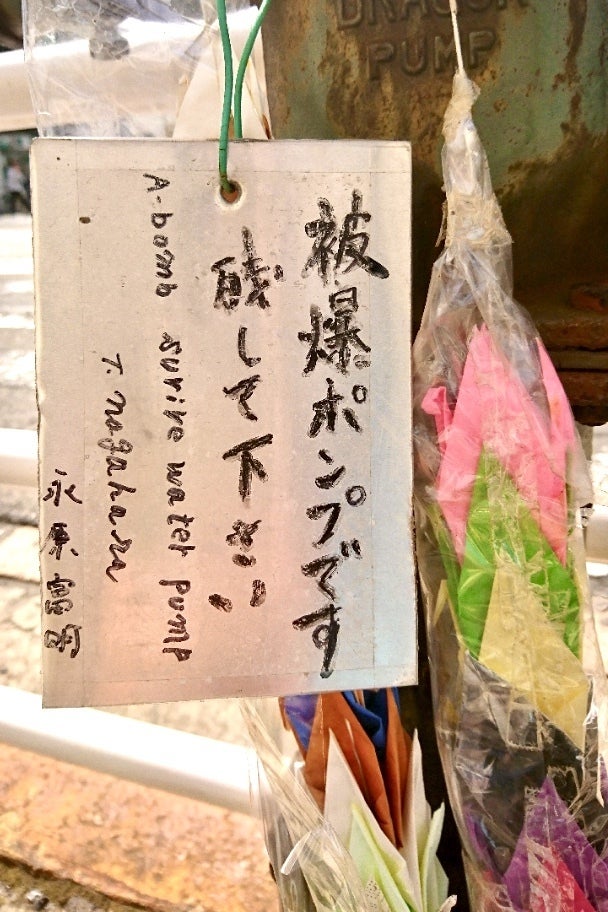 DRAGON
PUMP
被爆ポンプです
残して下さい
A-bomb surive water pump
T. Nagahara
永原